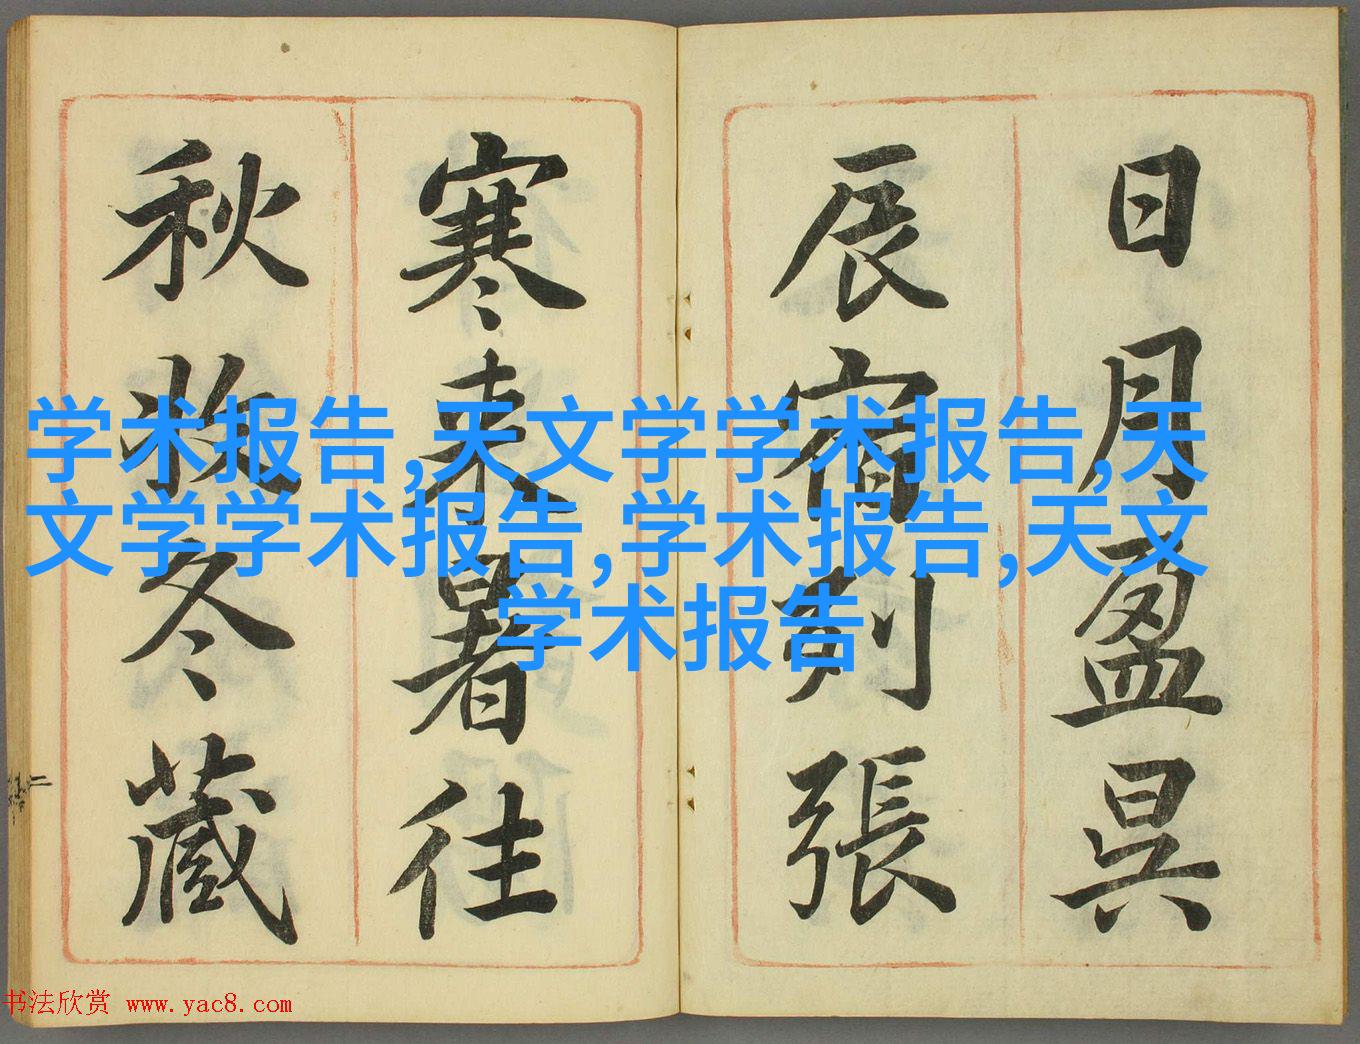 日月盈昃
辰宿列張
寒来暑往
秋收冬藏
学术报告,天文学学术报告,天
文学学术报告,学术报告,天文
学术报告
书法欣赏 www.yac8.com